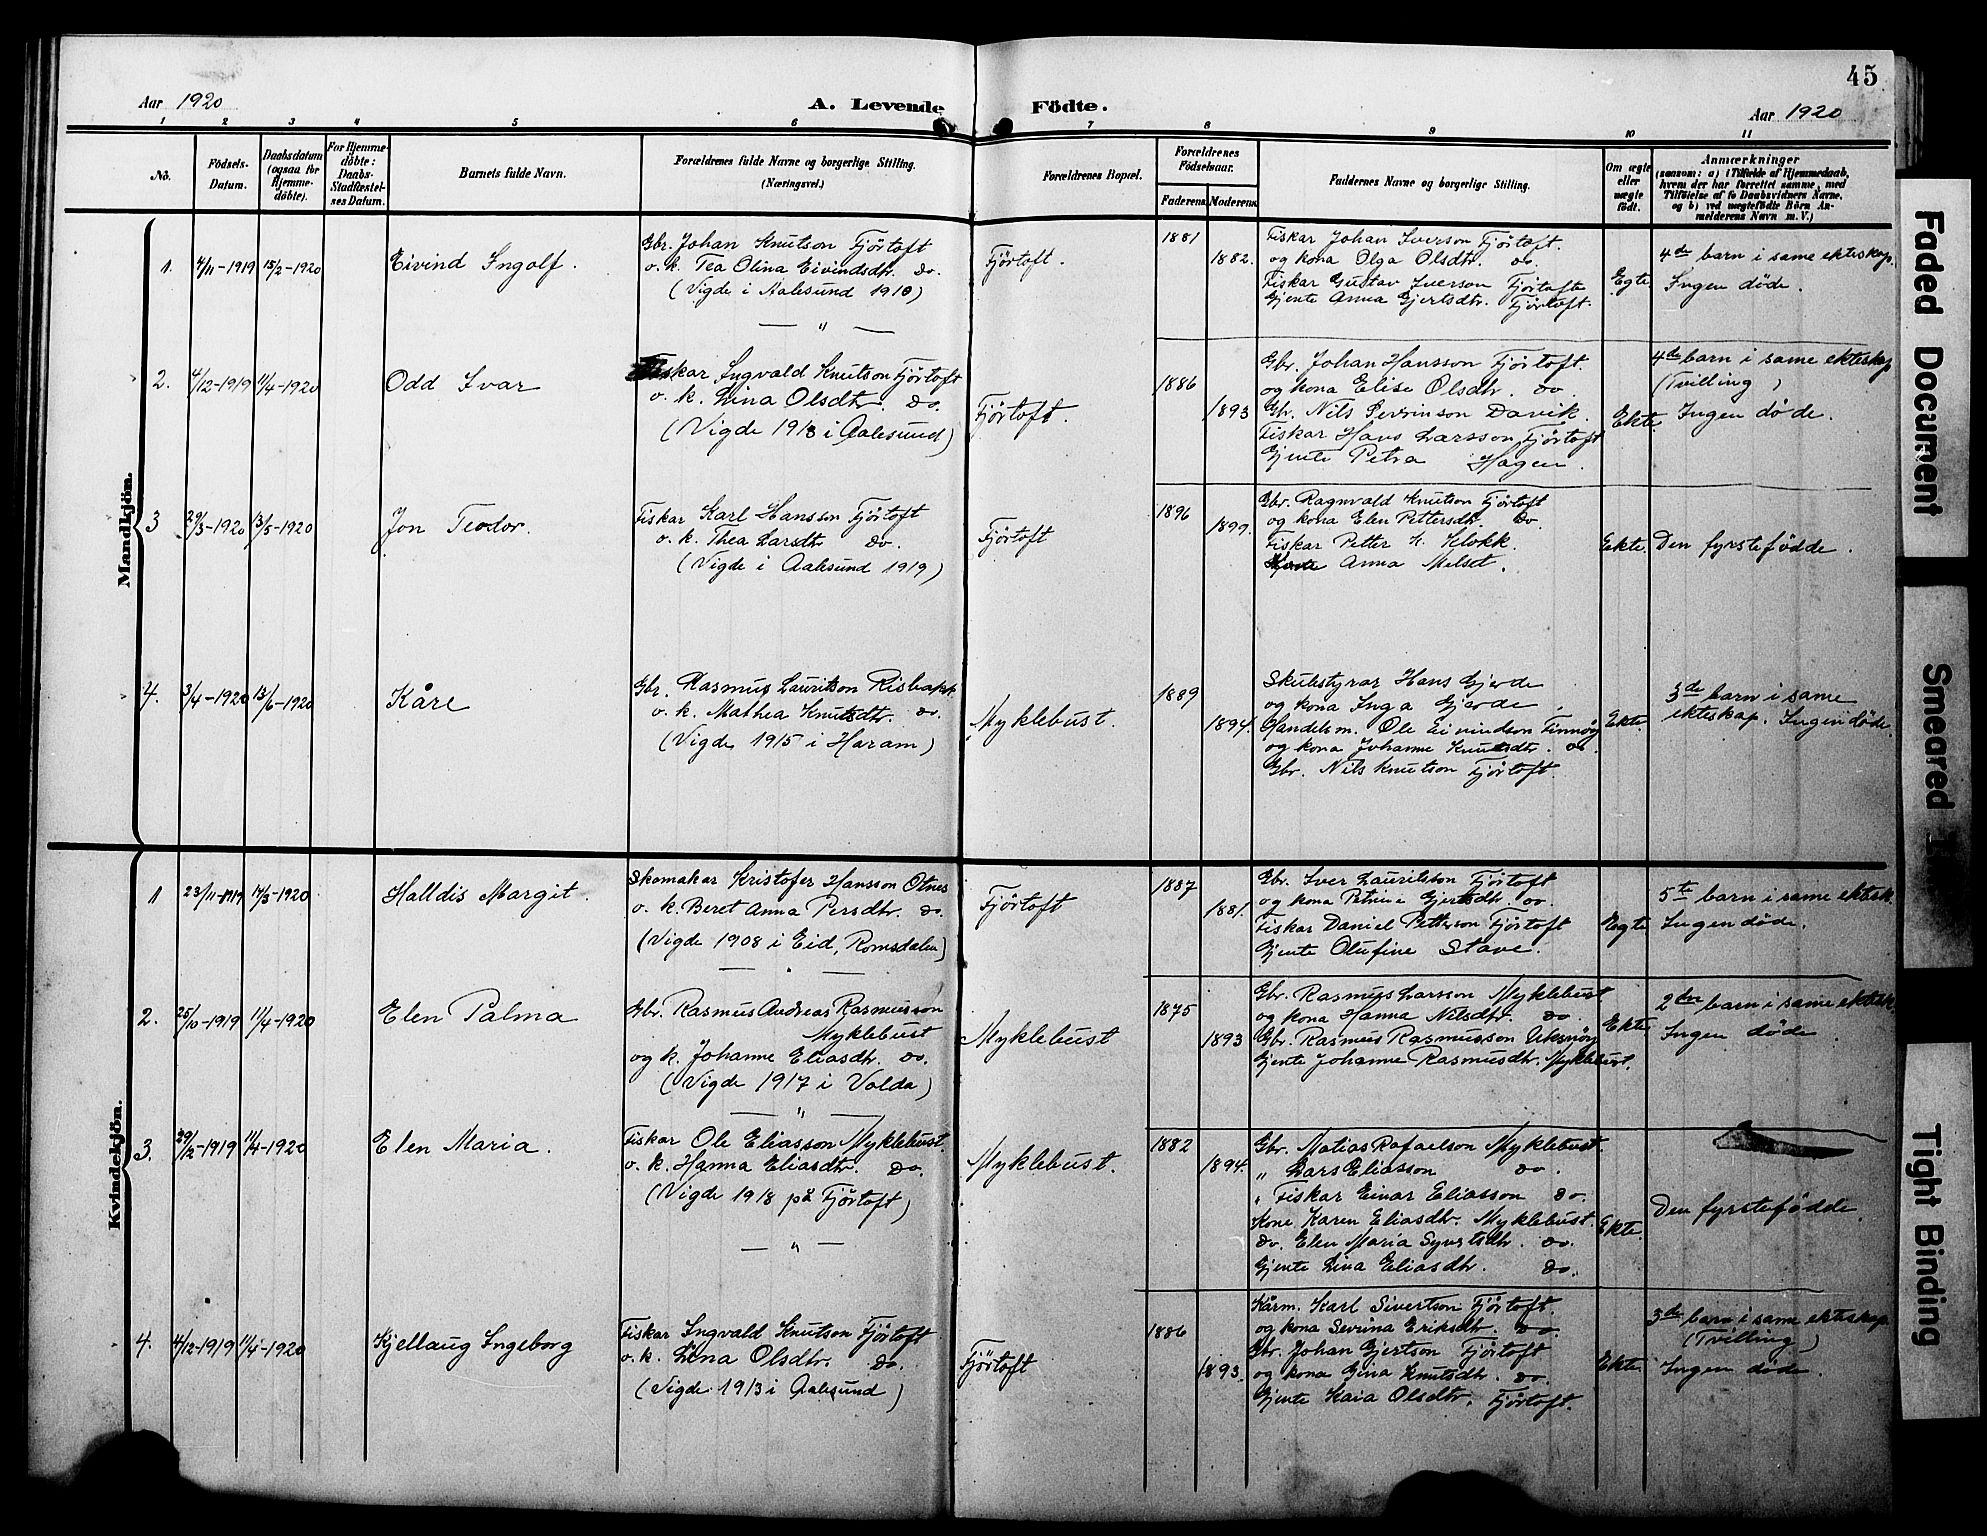 45
Aar 1920
A. Levende Födte.
Aar 1920
1 2 3 4 5 6 7 8 9 10 11
No.
Födsels-
Datum.
Daabsdatum
(ogsaa for
Hjemme-
döbte).
For Hjemme-
döbte:
Daabs-
Stadfæstel-
ses Datum.
Barnets fulde Navn.
Forældrenes fulde Navne og borgerlige Stilling.
(Næringsvei.)
Forældrenes Bopæl.
Forældrenes
Födselsaar.
Faderens. Moderens.
Faddernes Navne og borgerlige Stilling.
Om ægte
eller
uægte
födt.
Anmærkninger
(saasom: a) i Tilfælde af Hjemmedaab,
hvem der har forrettet samme, med
Tilföielse af to Daabsvidners Navne,
og b) ved uægtefödte Börn An-
melderens Navn m. V.)
Mandkjön.
1. 4/11-1919 15/2-1920
Eivind Ingolf.
Gbr. Johan Knutson Fjörtoft
o. k. Tea Olina Eivindsdtr. do.
(Vigde i Aalesund 1910)
Fjörtoft.
1881
1882.
Fiskar Johan Iverson Fjörtoft.
og kona Olga Olsdtr. do.
Fiskar Gustav Iverson Fjörtoft
Gjente Anna Gjertsdtr. Fjörtoft.
Egte
4de barn i same ekteskap.
Ingen döde.
2. 4/12-1919 11/4-1920
Odd Ivar
Fiskar Ingvald Knutson Fjörtoft
o. k. Lina Olsdtr. do.
(Vigde 1913 i Aalesund)
Fjörtoft.
1886
1893
Gbr. Johan Hansson Fjörtoft.
og kona Elise Olsdtr. do.
Gbr. Nils Sevrinson Davik.
Fiskar Hans Larsson Fjörtoft
Gjente Petra Hagen.
Ekte.
4de barn i same ekteskap
(Tvilling)
Ingen döde.
3 29/3-1920 13/5-1920
Jon Teodor.
Fiskar Karl Hansson Fjörtoft
o. k. Thea Larsdtr do.
(Vigde i Aalesund 1919)
Fjörtoft
1896
1899.
Gbr. Ragnvald Knutson Fjörtoft
og kona Elen Pettersdtr. do.
Fiskar Petter K. Klokk.
Anna Melset.
Ekte.
Den fyrstefödde.
4. 3/4-1920 13/6-1920
Kåre
Gbr. Rasmus Lauritson Risbakk
o. k. Mathea Knutsdtr. do.
(Vigde 1915 i Haram)
Myklebust.
1889
1894.
Skulestyrar Hans Gjerde
og kona Inga Gjerde.
Handelsm. Ole Eivindson Finnöy
og kona Johanne Knutsdtr. do.
Gbr. Nils Knutson Fjörtoft.
Ekte.
3de barn i same
ekteskap. Ingen döde.
Kvindekjön.
1 23/11-1919 17/3-1920
Halldis Margit.
Skomakar Kristofer Hansson Otnes
o. k. Beret Anna Persdtr. do.
(Vigde 1908 i Eid, Romsdalen)
Fjörtoft
1887
1881.
Gbr. Iver Lauritson Fjörtoft
og kona Petrine Gjertsdtr. do.
Fiskar Daniel Petterson Fjörtoft
Gjente Olufine Stave.
Egte
5te barn i same ektesk.
Ingen döde.
2. 25/10-1919 11/4-1920
Elen Palma
Gbr. Rasmus Andreas Rasmusson
Myklebust
og k. Johanne Eliasdtr. do.
(Vigde 1917 i Volda)
Myklebust
1875
1893
Gbr. Rasmus Larsson Myklebust
og kona Hanna Nilsdtr. do.
Gbr. Rasmus Rasmusson Uksnöy
Gjente Johanne Rasmusdtr. Myklebust.
Ekte.
2dre barn i same ektesk.
Ingen döde
3. 29/12-1919 11/4-1920
Elen Maria.
Fiskar Ole Eliasson Myklebust.
o. k. Hanna Eliasdtr. do.
(Vigde 1918 på Fjörtoft)
Myklebust.
1882
1894.
Gbr. Matias Rafaelson Myklebust.
" Lars Eliasson do.
" Fiskar Einar Eliasson do.
Kone Karen Eliasdtr. Myklebust.
do. Elen Maria Syvertsdtr. do.
Gjente Lina Eliasdtr. do.
Ekte.
Den fyrstefödde.
4. 4/12-1919 11/4-1920
Kjellaug Ingeborg
Fiskar Ingvald Knutson Fjörtoft
o. k. Lina Olsdtr. do.
(Vigde 1913 i Aalesund)
Fjörtoft
1886
1893.
Kårm. Karl Sivertson Fjörtoft.
og kona Sevrina Eriksdtr. do.
Gbr. Johan Gjertson Fjörtoft
og kona Gina Knutsdtr. do.
Gjente Kaia Olsdtr. Fjörtoft.
Ekte.
3de barn i same ekteskap.
(Tvilling)
Ingen döde.
Faded Document
Smeared
Tight Binding